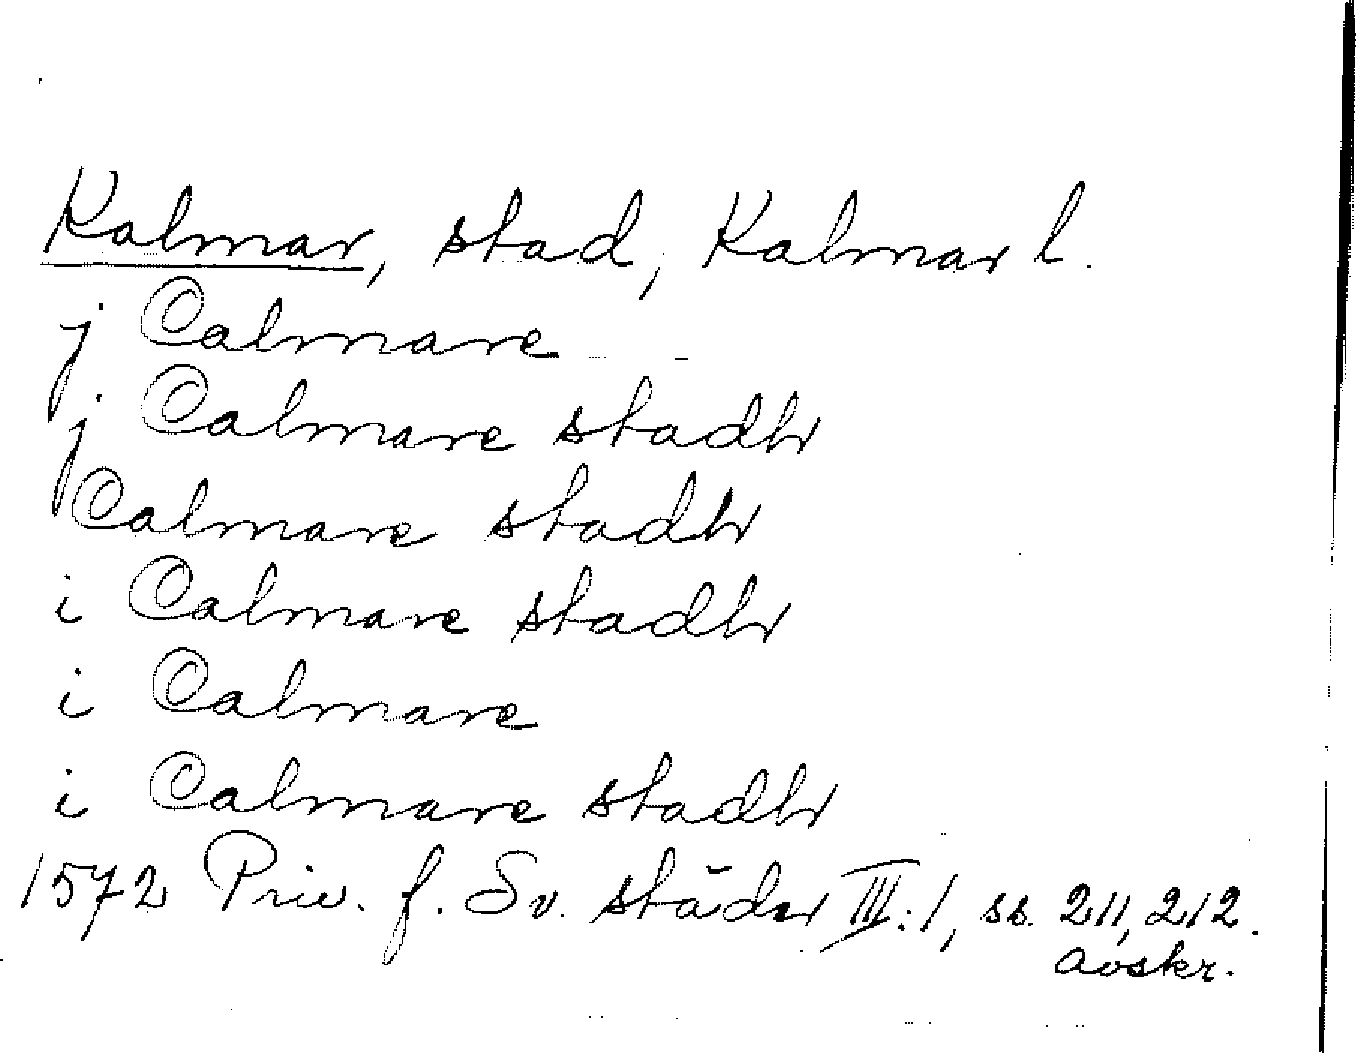 Kalmar, stad, Kalmar l.
j Calmare
j Calmare stadh
Calmare stadh
i Calmare stadh
i Calmare
i Calmare stadh
1572 Priv. f. Sv. städer III:1, ss. 211, 212.
avskr.